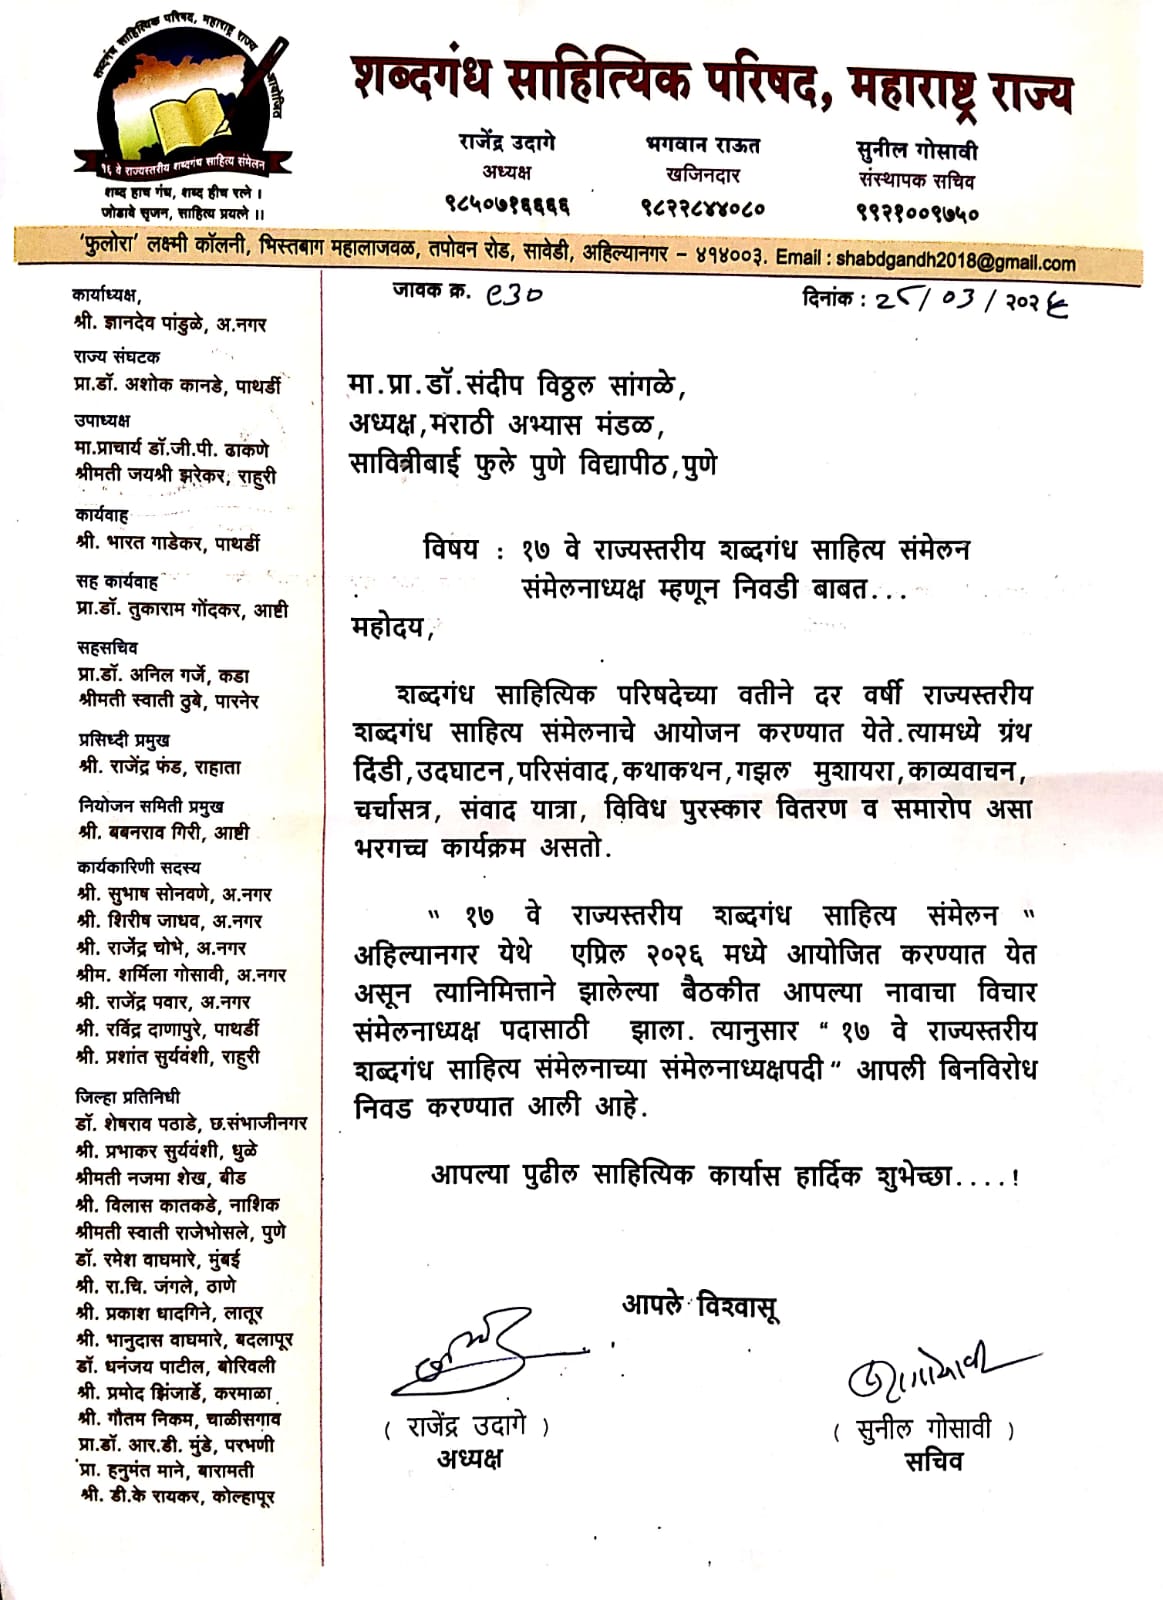 शब्दगंध साहित्यिक परिषद, महाराष्ट्र राज्य आयोजित
१६ वे राज्यस्तरीय शब्दगंध साहित्य संमेलन
शब्द हाच गंध, शब्द हीच रत्ने ।
जोडावे सृजन, साहित्य प्रयत्ने ।।
शब्दगंध साहित्यिक परिषद, महाराष्ट्र राज्य
राजेंद्र उदागे
अध्यक्ष
९८५०७१६६६६
भगवान राऊत
खजिनदार
९८२२८४४०८०
सुनील गोसावी
संस्थापक सचिव
९९२१००९७५०
'फुलोरा' लक्ष्मी कॉलनी, भिस्तबाग महालाजवळ, तपोवन रोड, सावेडी, अहिल्यानगर – ४१४००३. Email : shabdgandh2018@gmail.com
जावक क्र. ९३०
दिनांक : २८/०३/२०२६
कार्याध्यक्ष,
श्री. ज्ञानदेव पांडुळे, अ.नगर
राज्य संघटक
प्रा.डॉ. अशोक कानडे, पाथर्डी
उपाध्यक्ष
मा.प्राचार्य डॉ.जी.पी. ढाकणे
श्रीमती जयश्री झरेकर, राहुरी
कार्यवाह
श्री. भारत गाडेकर, पाथर्डी
सह कार्यवाह
प्रा.डॉ. तुकाराम गोंदकर, आष्टी
सहसचिव
प्रा.डॉ. अनिल गर्जे, कडा
श्रीमती स्वाती ठुबे, पारनेर
प्रसिध्दी प्रमुख
श्री. राजेंद्र फंड, राहाता
नियोजन समिती प्रमुख
श्री. बबनराव गिरी, आष्टी
कार्यकारिणी सदस्य
श्री. सुभाष सोनवणे, अ.नगर
श्री. शिरीष जाधव, अ.नगर
श्री. राजेंद्र चोभे, अ.नगर
श्रीम. शर्मिला गोसावी, अ.नगर
श्री. राजेंद्र पवार, अ.नगर
श्री. रविंद्र दाणापुरे, पाथर्डी
श्री. प्रशांत सुर्यवंशी, राहुरी
जिल्हा प्रतिनिधी
डॉ. शेषराव पठाडे, छ.संभाजीनगर
श्री. प्रभाकर सुर्यवंशी, धुळे
श्रीमती नजमा शेख, बीड
श्री. विलास कातकडे, नाशिक
श्रीमती स्वाती राजेभोसले, पुणे
डॉ. रमेश वाघमारे, मुंबई
श्री. रा.चि. जंगले, ठाणे
श्री. प्रकाश घादगिने, लातूर
श्री. भानुदास वाघमारे, बदलापूर
डॉ. धनंजय पाटील, बोरिवली
श्री. प्रमोद झिंजार्डे, करमाळा
श्री. गौतम निकम, चाळीसगाव
प्रा.डॉ. आर.डी. मुंडे, परभणी
प्रा. हनुमंत माने, बारामती
श्री. डी.के रायकर, कोल्हापूर
मा.प्रा.डॉ.संदीप विठ्ठल सांगळे,
अध्यक्ष,मराठी अभ्यास मंडळ,
सावित्रीबाई फुले पुणे विद्यापीठ,पुणे
विषय : १७ वे राज्यस्तरीय शब्दगंध साहित्य संमेलन
संमेलनाध्यक्ष म्हणून निवडी बाबत...
महोदय,
शब्दगंध साहित्यिक परिषदेच्या वतीने दर वर्षी राज्यस्तरीय
शब्दगंध साहित्य संमेलनाचे आयोजन करण्यात येते.त्यामध्ये ग्रंथ
दिंडी,उदघाटन,परिसंवाद,कथाकथन,गझल मुशायरा,काव्यवाचन,
चर्चासत्र, संवाद यात्रा, विविध पुरस्कार वितरण व समारोप असा
भरगच्च कार्यक्रम असतो.
" १७ वे राज्यस्तरीय शब्दगंध साहित्य संमेलन "
अहिल्यानगर येथे एप्रिल २०२६ मध्ये आयोजित करण्यात येत
असून त्यानिमित्ताने झालेल्या बैठकीत आपल्या नावाचा विचार
संमेलनाध्यक्ष पदासाठी झाला. त्यानुसार " १७ वे राज्यस्तरीय
शब्दगंध साहित्य संमेलनाच्या संमेलनाध्यक्षपदी " आपली बिनविरोध
निवड करण्यात आली आहे.
आपल्या पुढील साहित्यिक कार्यास हार्दिक शुभेच्छा....!
आपले विश्वासू
( राजेंद्र उदागे )
अध्यक्ष
( सुनील गोसावी )
सचिव